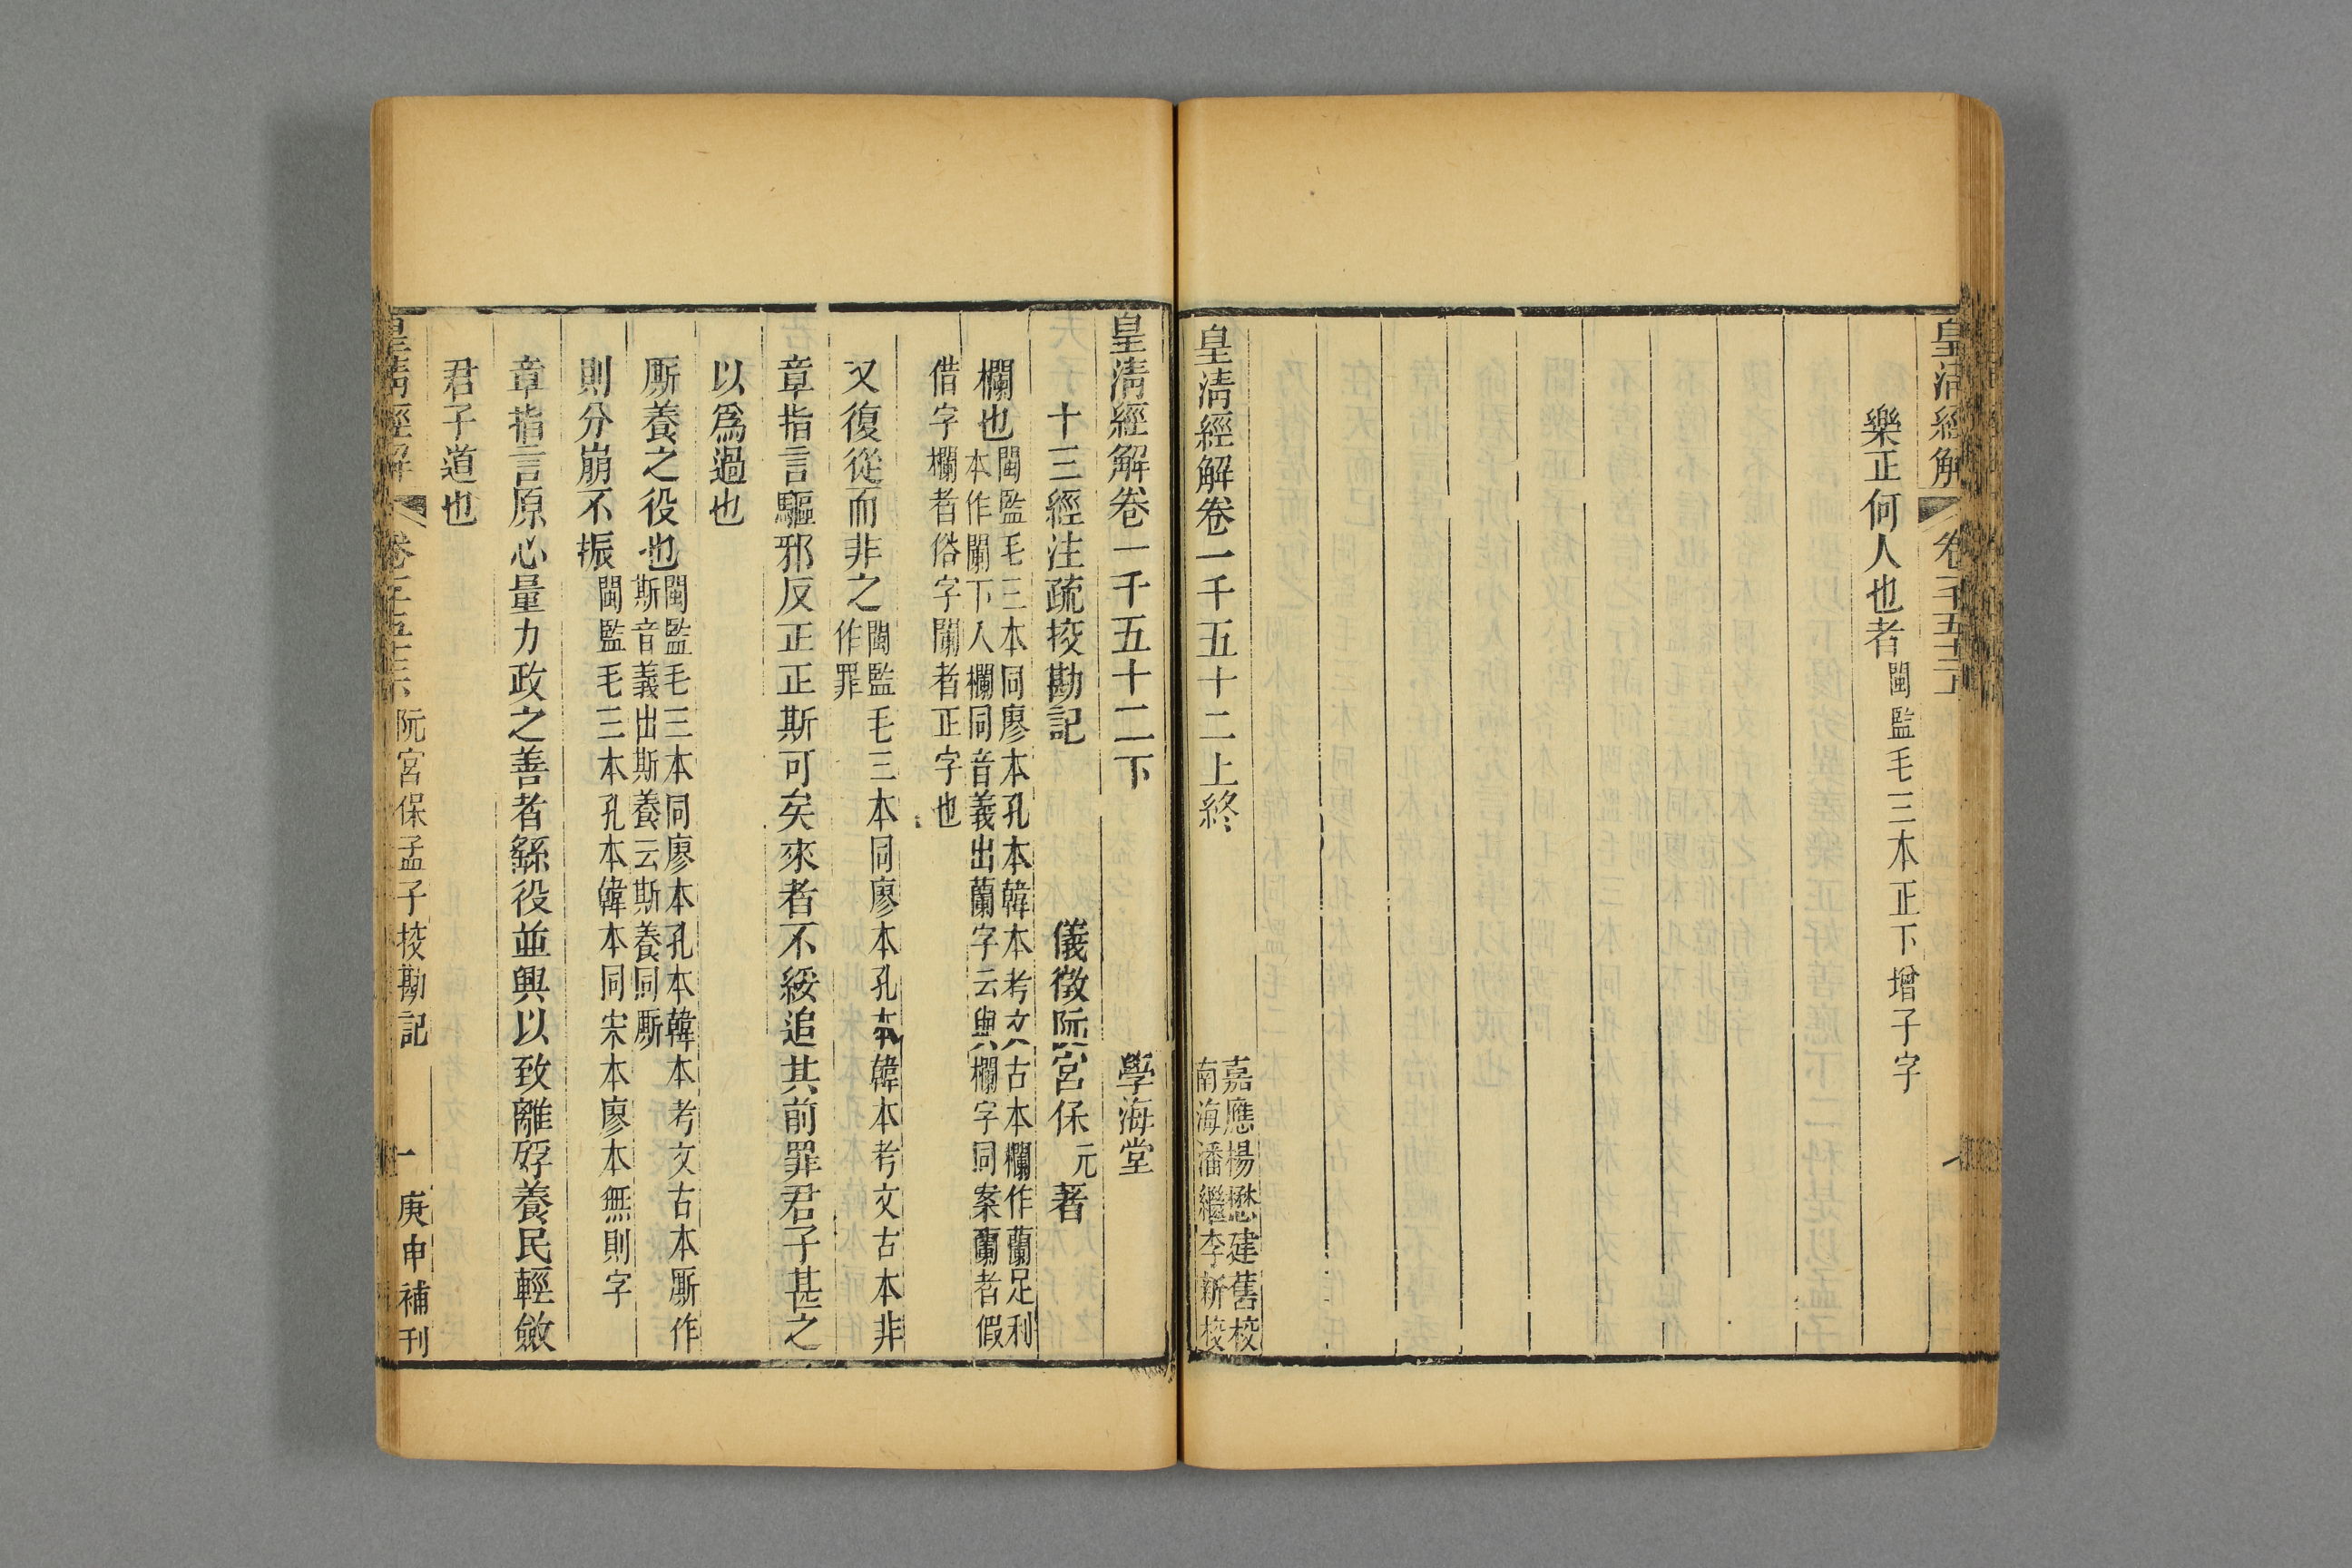 皇清經解
卷千五十二
樂正何人也者閩監毛三本正下增子字
皇清經解卷一千五十二上終
嘉應楊懋建舊校
南海潘繼李新校
皇清經解卷一千五十二下
學海堂
十三經注疏挍勘記
儀徵阮宮保元著
欄也閩監毛三本同廖本孔本韓本考文古本欄作蘭足利
本作闌下人欄同音義出蘭字云與欄字同案蘭者假
借字欄者俗字闌者正字也
又復從而非之閩監毛三本同廖本孔本韓本考文古本非
作罪
章指言驅邪反正正斯可矣來者不綏追其前罪君子甚之
以爲過也
厮養之役也閩監毛三本同廖本孔本韓本考文古本厮作
斯音義出斯養云斯養同厮
則分崩不振閩監毛三本孔本韓本同宋本廖本無則字
章指言原心量力政之善者繇役並興以致離殍養民輕斂
君子道也
皇清經解
阮宮保孟子挍勘記
一
庚申補刊